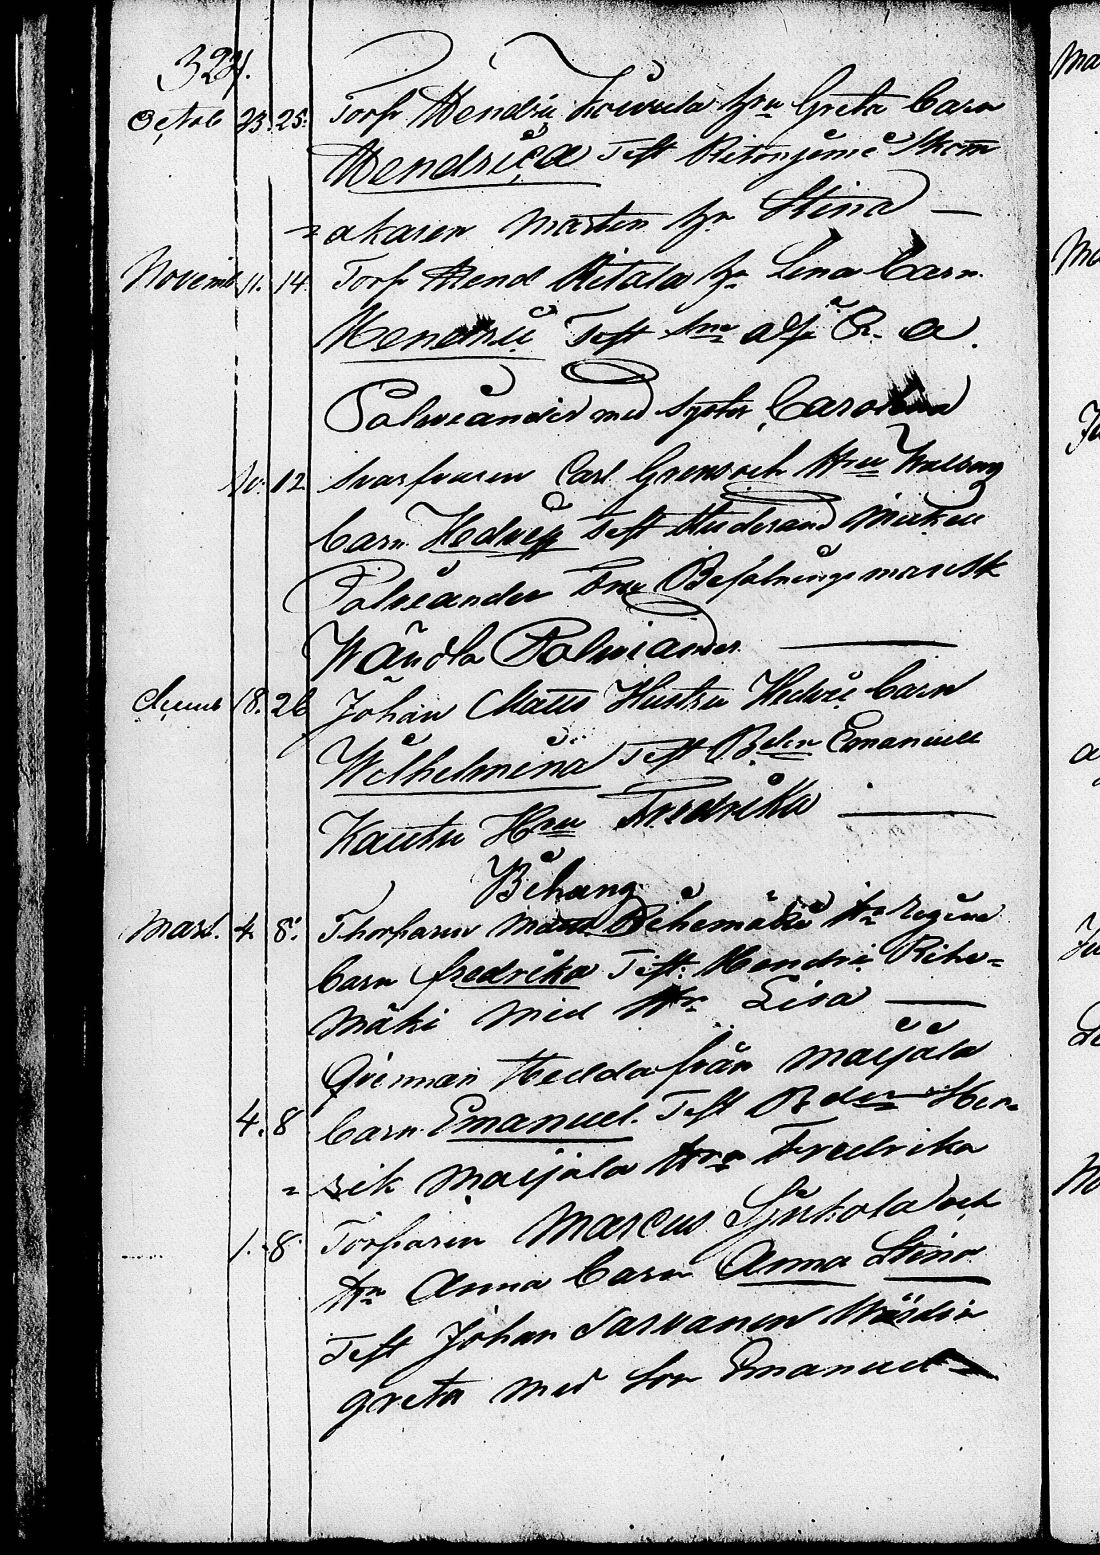 324.
Octob 23. 25. Torp Hendric hr Greta Barn
Hendrica Test Skom
= akaren Martin hr Stina —
Novemb 11. 14. Torp Hend Ritala hr Lena Barn
Hendric Test
Polviander med Syster Carolina
10. 12 Carl och Hru Walborg
Barn Hedvig Test Studerand Mickell
Polviander Fru Befalnings mansk
Wändla Polviander —
18. 26 Johan Matts Hustru Hedvi Barn
Wilhelmina Test Bdn Emanuel
Hru Fredrika —
Bihang
Mart. 4. 8. Thorparen Matts Rihemäki Hr Regina
Barn fredrika Test. Hendric Rihe=
mäki med Hr Lisa —
Qvinnan Hedda från Maijala
4. 8 Barn Emanuel. Test Bden Hen=
= rik Maijala Hru Fredrika
1. 8. Torparen Marcus och
Hr Anna Barn Anna Stina
Test Johan Sarvanen Wärdin
greta med Son Emanuel